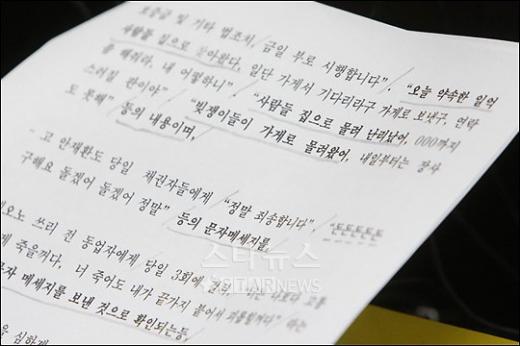 보증금 및 기타 법조치, 금일 부로 시행합니다", "오늘 약속한 일억
사람들 집으로 찾아왔다. 일단 가게서 기다리라구 가게로 보낸구, 연락
를 해줘라. 내 어찔하니" "사람들 집으로 몰려 난리났어, 000까지
스러질 판이야" "빚쟁이들이 가게로 몰려왔어, 내일부터는 장사
도 못해" 등의 내용이며,
" 고 안재환도 당일 채권자들에게 "정말 죄송합니다", "도도도도도
구해요 돌겠어 돌겠어 정말" 등의 문자메세지를,
오노 쓰리 전 동업자에게 당일 3회에 나보다 고통
게 죽을꺼다, 너 죽어도 내가 끝까지 붙어서 괴롭힐꺼다" 하는
문자 메세지를 보낸 것으로 확인되는등,
심하게
스타뉴스
STARNEWS